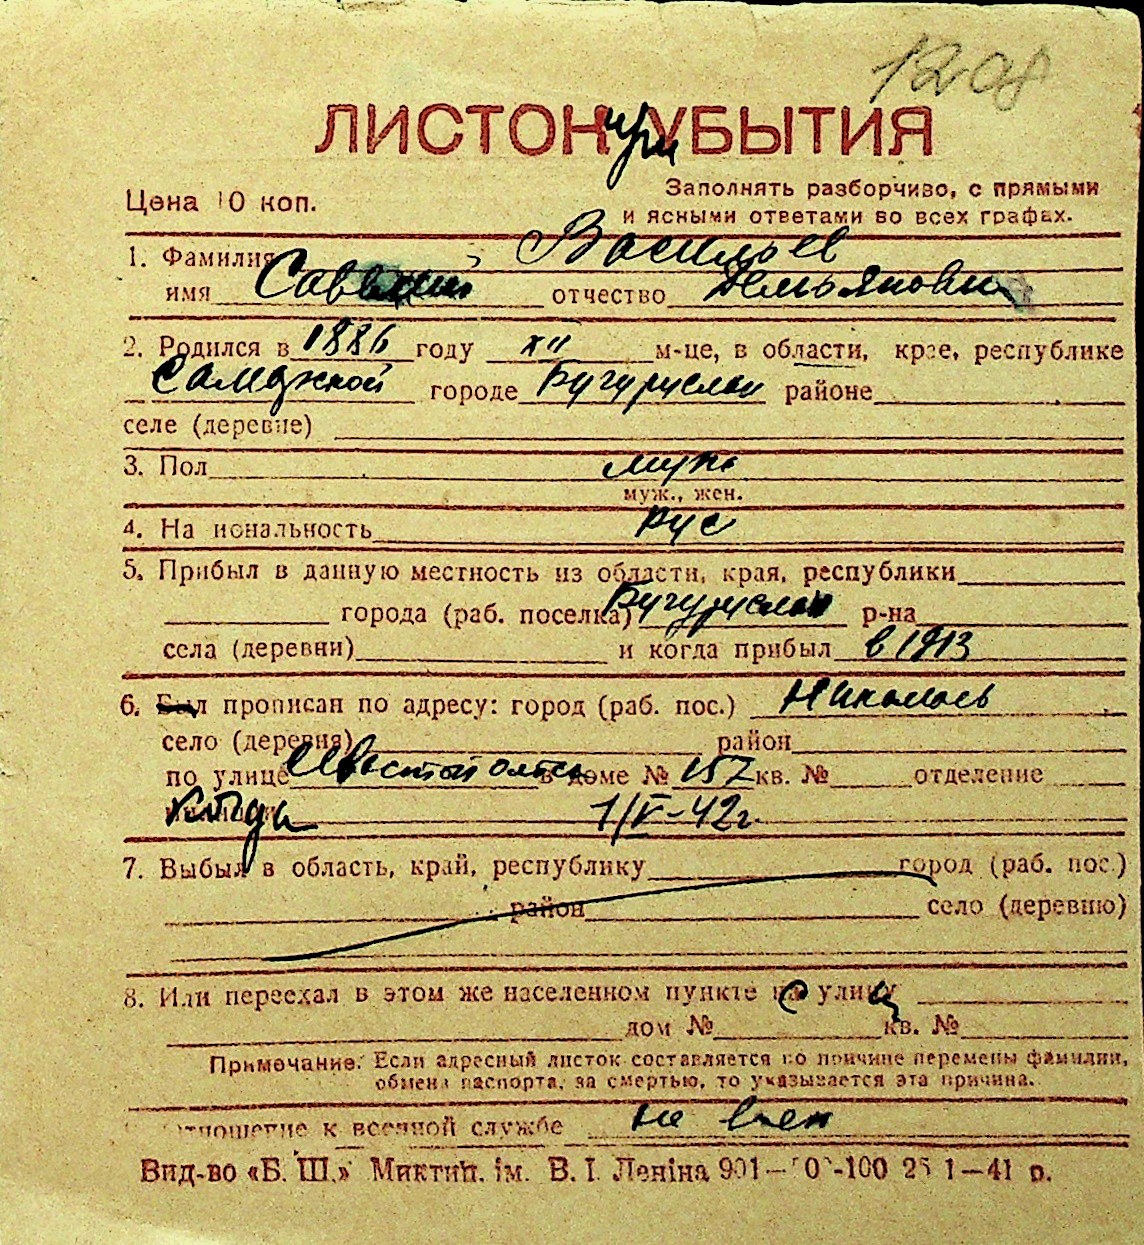 1208
ЛИСТОК при УБЫТИЯ
Цена 10 коп.
Заполнять разборчиво, с прямыми
и ясными ответами во всех графах.
1. Фамилия Васильев
имя отчество Демьянович
2. Родился в 1886 году XII м-це, в области, крае, республике
Самарской городе Бугуруслан районе
селе (деревне)
3. Пол муж
муж., жен.
4. Национальность рус
5. Прибыл в данную местность из области, края, республики
города (раб. поселка) Бугуруслан р-на
села (деревни) и когда прибыл в 1913
6. Был прописан по адресу: город (раб. пос.) Николаев
село (деревня) район
по улице в доме № 157 кв. № отделение
милиции когда 1/V-42г.
7. Выбыл в область, край, республику город (раб. пос.)
район село (деревню)
8. Или переехал в этом же населенном пункте с улицы
дом № кв. №
Примечание. Если адресный листок составляется по причине перемены фамилии,
обмена паспорта, за смертью, то указывается эта причина.
Отношение к военной службе не воен
Вид-во «Б. Ш.» Миктип. ім. В. І. Леніна 901— -100 25 1—41 р.